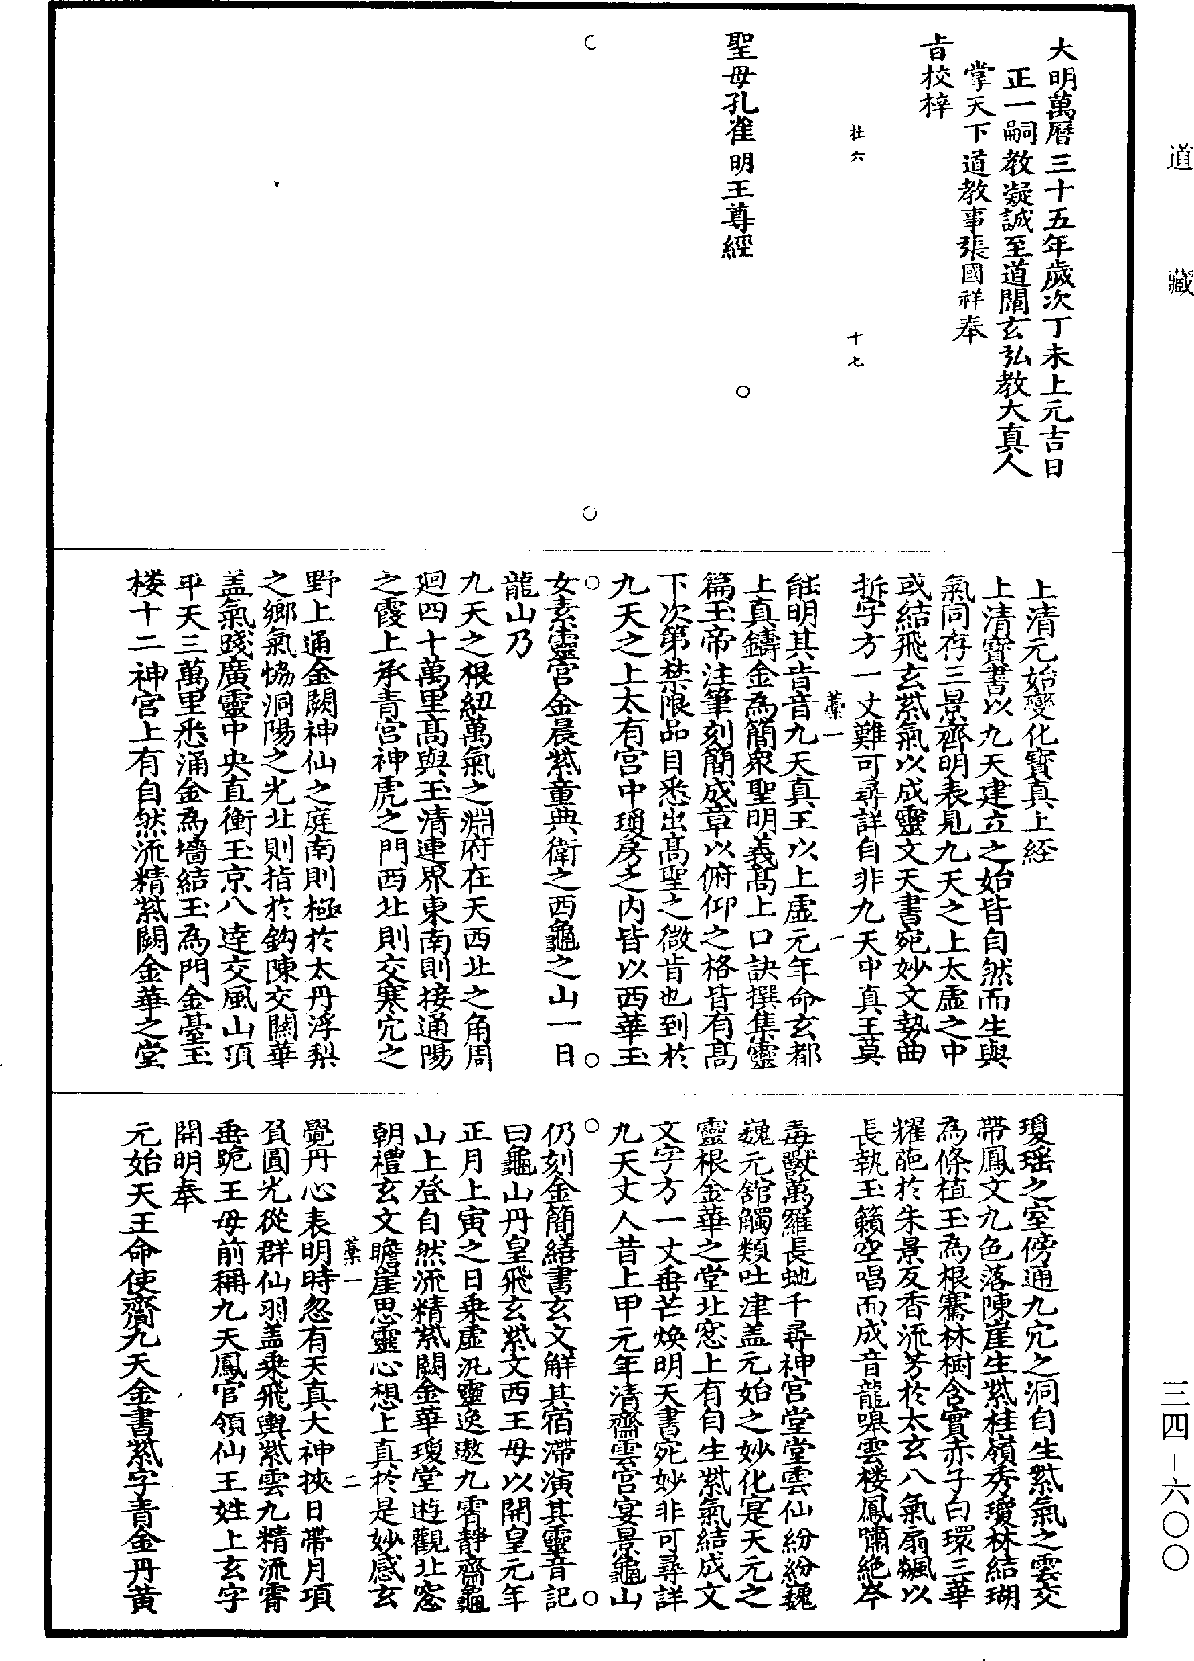 道藏
大明萬曆三十五年歲次丁未上元吉日
正一嗣教凝誠至道闡玄弘教大真人
掌天下道教事張國祥奉
旨校梓
杜六 十七
聖母孔雀明王尊經
上清元始變化寶真上經
上清寶書以九天建立之始皆自然而生與
氣同存三景齊明表見九天之上太虛之中
或結飛玄紫氣以成靈文天書宛妙文勢曲
拆字方一丈難可尋詳自非九天中真王莫
藁一 一
能明其旨音九天真王以上虛元年命玄都
上真鑄金為簡衆聖明義高上口訣撰集靈
篇玉帝注筆刻簡成章以俯仰之格皆有高
下次第禁限品目悉出高聖之微旨也到於
九天之上太有宮中瓊房之内皆以西華玉
女素靈宮金晨紫童典衛之西龜之山一曰
龍山乃
九天之根紐萬氣之淵府在天西北之角周
廻四十萬里高與玉清連界東南則接通陽
之霞上承青宮神虎之門西北則交寒穴之
野上通金闕神仙之庭南則極於太丹浮梨
之鄉氣恊洞陽之光北則指於鈎陳交關華
盖氣踐廣靈中央直衝玉京八達交風山頂
平天三萬里悉涌金為墻結玉為門金臺玉
楼十二神宮上有自然流精紫闕金華之堂
瓊瑶之室傍通九穴之洞自生紫氣之雲交
帶鳳文九色落陳崖生紫桂嶺秀瓊林結瑚
為條植玉為根騫林樹含實赤子白環三華
耀葩於朱景反香流芳於太玄八氣扇飊以
長執玉籟空唱而成音龍嘷雲楼鳳嘯絶岑
毒獸萬羅長虵千尋神宮堂堂雲仙紛紛巍
巍元舘觸類吐津盖元始之妙化寔天元之
靈根金華之堂北窓上有自生紫氣結成文
文字方一丈垂芒煥明天書宛妙非可尋詳
九天丈人昔上甲元年清齋雲宮宴景龜山
仍刻金簡繕書玄文解其宿滯演其靈音記
曰龜山丹皇飛玄紫文西王母以開皇元年
正月上寅之日乗虛汎靈逸遨九霄靜齋龜
山上登自然流精紫闕金華瓊堂遊觀北窓
朝禮玄文瞻崖思靈心想上真於是妙感玄
藁一 二
覺丹心表明時忽有天真大神挾日帶月項
負圓光從群仙羽盖乗飛輿紫雲九精流霄
垂跪王母前稱九天鳳官領仙王姓上玄字
開明奉
元始天王命使齎九天金書紫字青金丹黃
三四-六〇〇